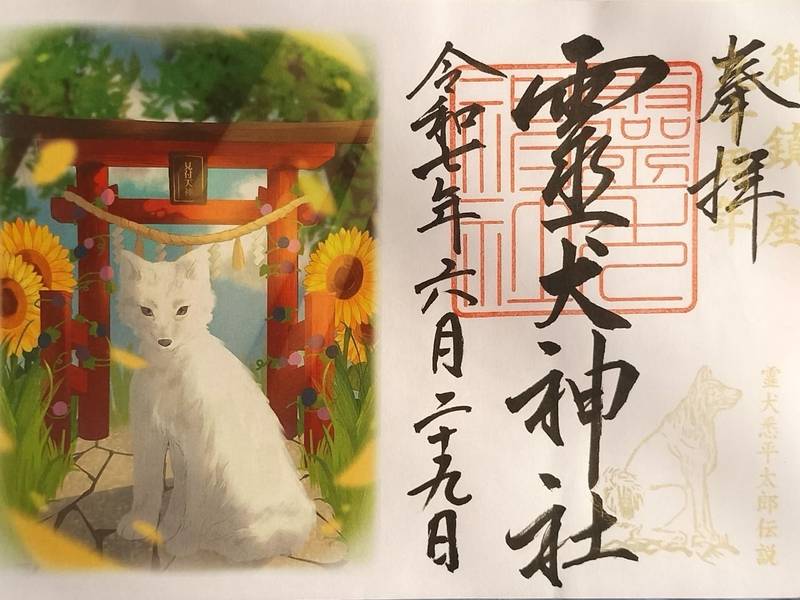 御鎮座
奉拝
霊犬悉平太郎伝説
霊犬神社
令和七年六月二十九日
見付天神